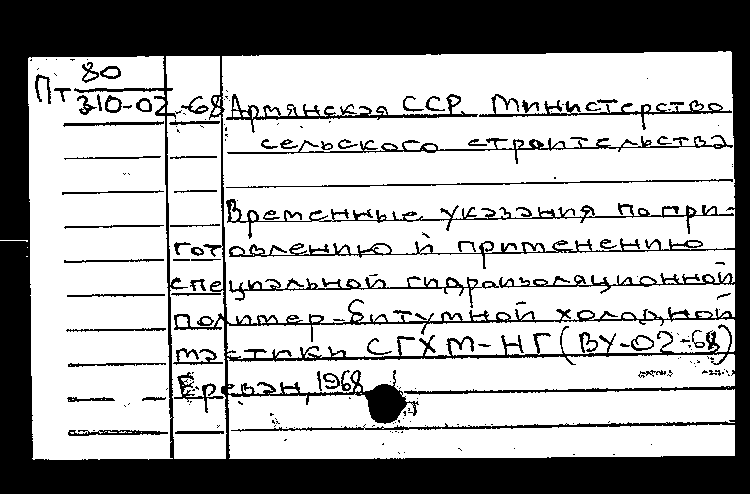 80
Пт 310-02-68 Армянская ССР. Министерство
сельского строительства
Временные указания по при-
готовлению и применению
специальной гидроизоляционной
полимер-битумной холодной
мастики СГХМ-НГ (ВУ-02-68)
Ереван, 1968